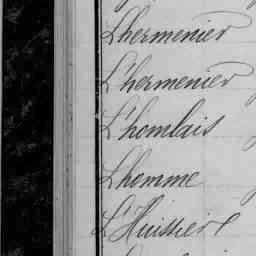 Lhermenier
L'hermenier
L'homlais
Lhomme
L'Huissier